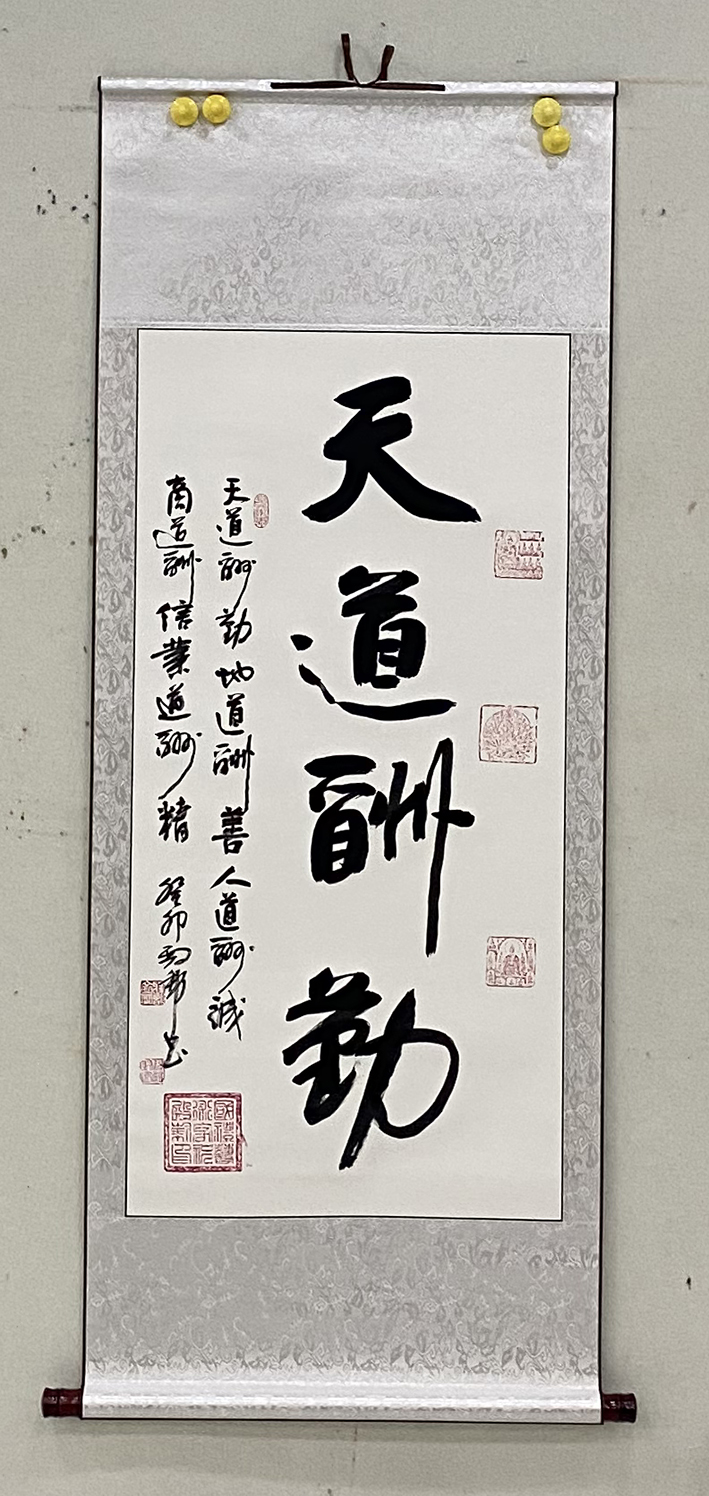 天道酬勤
天道酬勤地道酬善人道酬誠
商道酬信業道酬精 癸卯